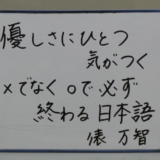 優しさにひとつ
気がつく
×でなく○で必ず
終わる日本語
俵万智